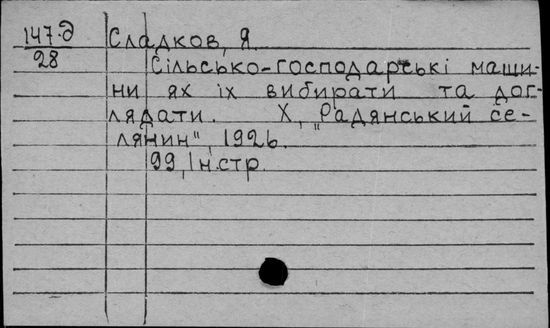 147.д
28
Сладков, Я.
Сільсько-господарські маши-
ни ях їх вибирати та дог-
лядати. Х, „Радянський се-
лянин", 1926.
99, 1 н.стр.